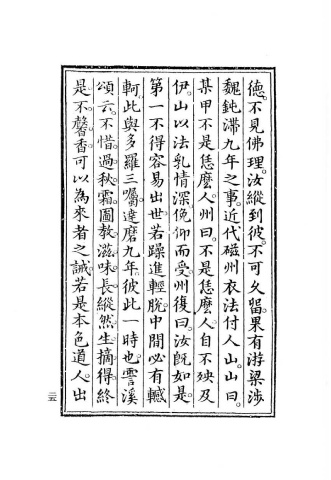 德。不見佛理。汝縱到彼。不可久畱。果有游梁涉
魏鈍滯九年之事。近代磁州衣法付人山。山曰。
某甲不是恁麼人。州曰。不是恁麼人。自不殃及
伊。山以法乳情深。俛仰而受。州復曰。汝旣如是。
第一不得容易出世。若躁進輕脫。中間必有轗
軻。此與多羅三囑達磨九年。彼此一時也。雪溪
頌云。不惜過秋霜。圖敎滋味長。縱然生摘得。終
是不馨香。可以為來者之誡。若是本色道人。出
二五